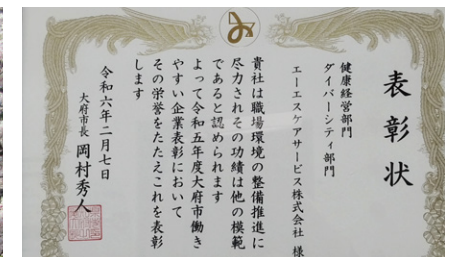 表彰状
健康経営部門
ダイバーシティ部門
エーエスケアサービス株式会社 様
貴社は職場環境の整備推進に
尽力されその功績は他の模範
であると認められます
よって令和五年度大府市働き
やすい企業表彰において
その栄誉をたたえこれを表彰
します
令和六年二月七日
大府市長 岡村秀人